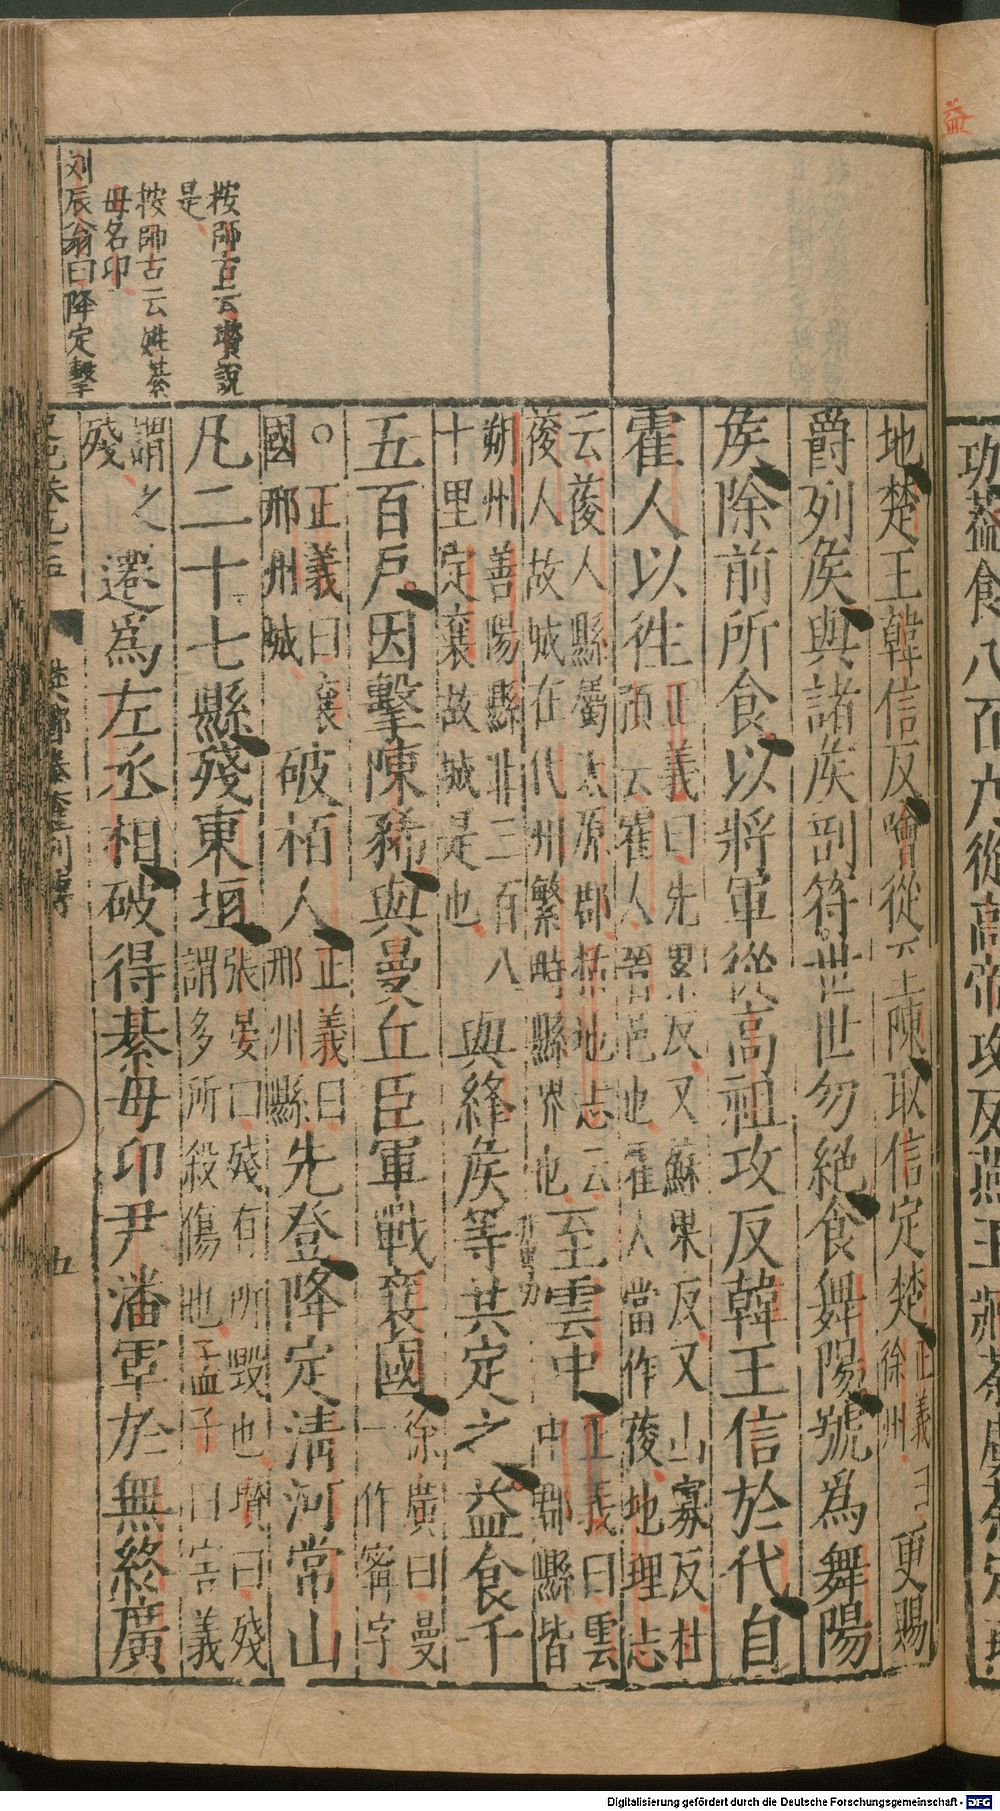 益
功益食八百户從高帝攻反燕王臧荼虜荼定
地楚王韓信反噲從至陳取信定楚
正義曰
徐州
更賜
爵列矦與諸矦剖符世世勿絶食舞陽號爲舞陽
矦除前所食以將軍從高祖攻反韓王信於代自
霍人以徃
正義曰先累反又蘇果反又山寡反杜
預云霍人晉邑也霍人當作葰地理志
云葰人縣屬太原郡括地志云
葰人故城在代州繁時縣界也
至雲中
正義曰雲
中郡縣皆
朔州善陽縣北三百八
十里定襄故城是也
與絳矦等共定之益食千
五百户因擊陳豨與曼丘臣軍戰襄國
徐廣曰曼
一作甯字
○正義曰襄
國邢州城
破栢人
正義曰
邢州縣
先登降定清河常山
凡二十七縣殘東垣
張晏曰殘有所毀也瓚曰殘
謂多所殺傷也孟子曰害義
謂之
殘
遷爲左丞相破得綦毋卬尹潘軍於無終廣
史記卷九十五
樊酈滕灌列傳
五
按師古云瓚說
是
按師古云姓綦
毋名卬
刘辰翁曰降定擊
Digitalisierung gefördert durch die Deutsche Forschungsgemeinschaft - DFG